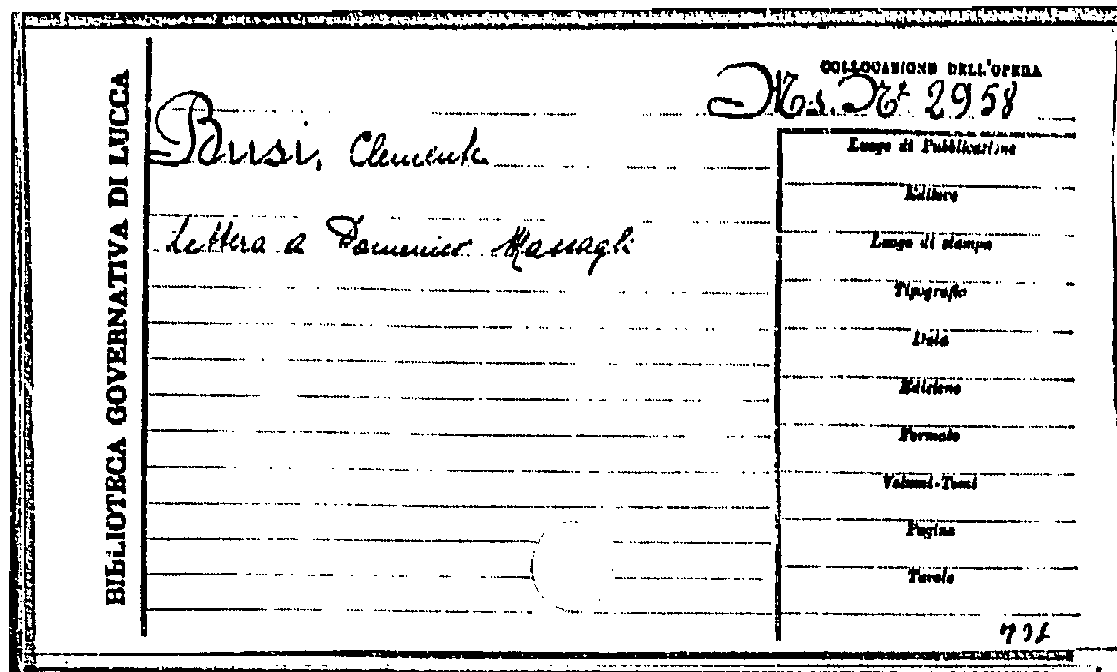 BIBLIOTECA GOVERNATIVA DI LUCCA
COLLOCAZIONE DELL'OPERA
Ms. N° 2958
Busi, Clemente
Lettera a Domenico Massagli
Luogo di Pubblicazione
Editore
Luogo di stampa
Tipografo
Data
Edizione
Formato
Volumi-Tomi
Pagine
Tavole